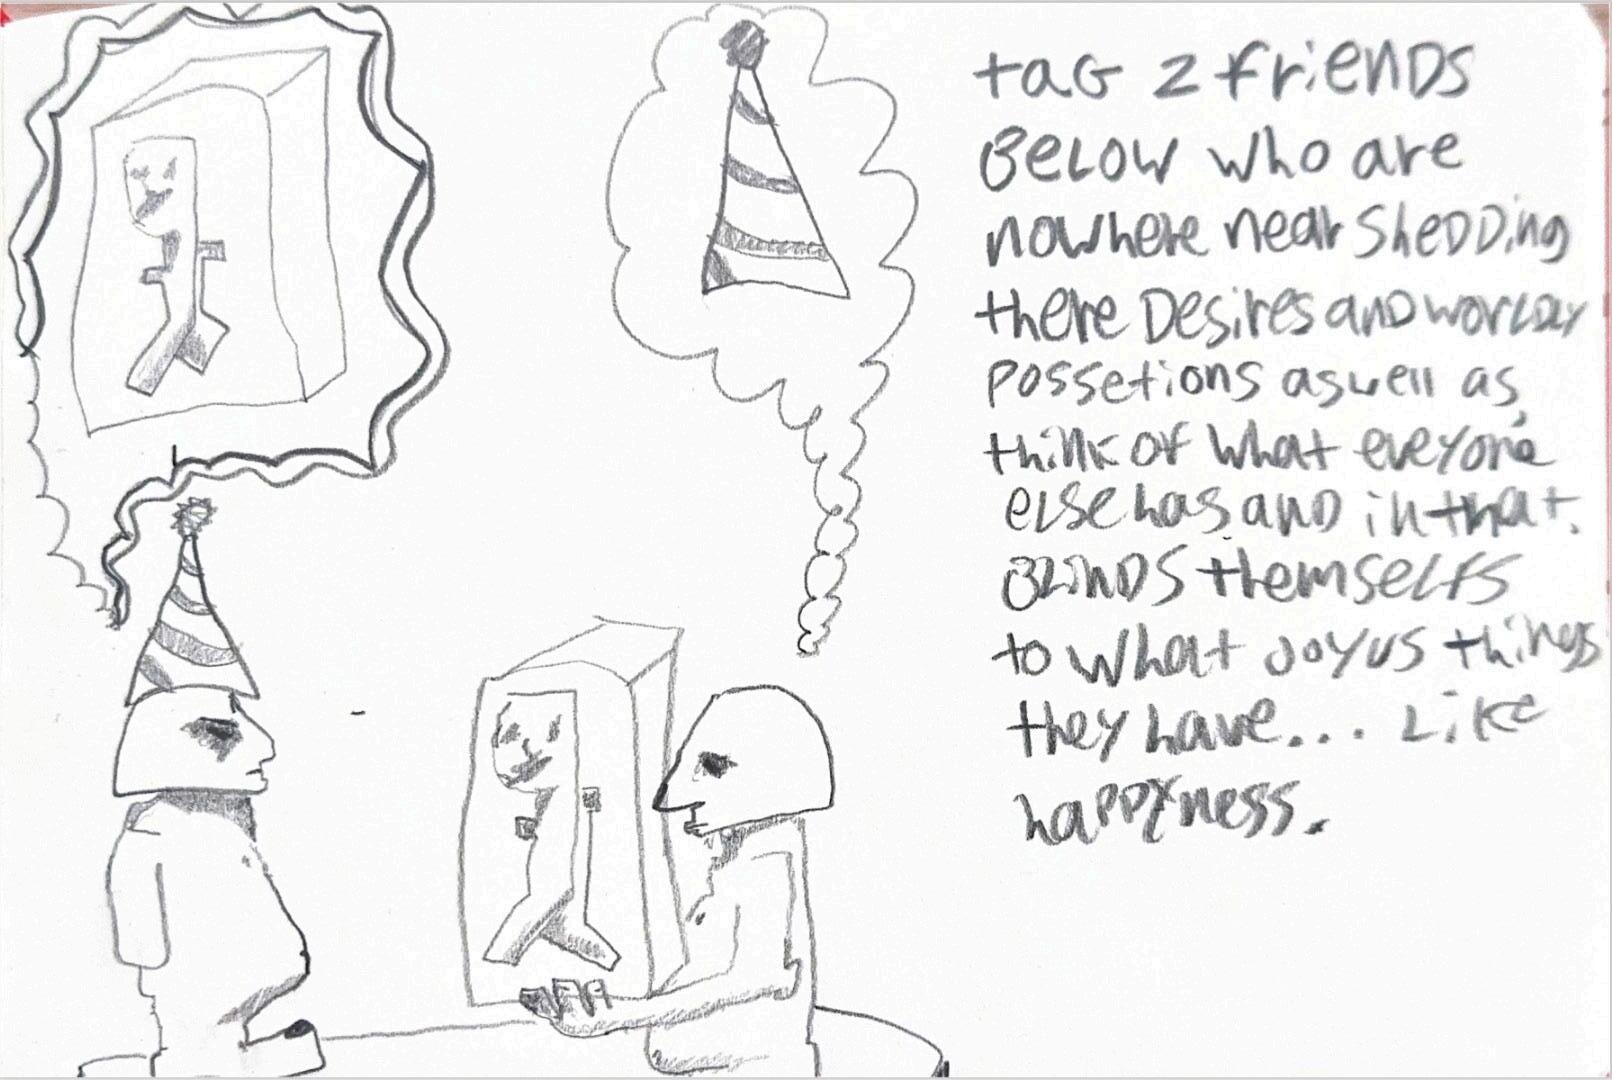 tag 2 friends
Below who are
nowhere near shedding
there Desires and worlday
possetions aswell as,
think of what eveyone
else has and in that.
Blinds themselfs
to what joyus things
they have... Like
happyness.